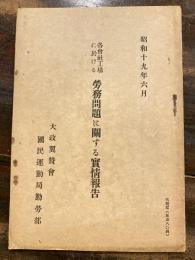 昭和十九年六月
各會社工場に於ける
勞務問題に關する實情報告
大政翼贊會
國民運動局勤勞部